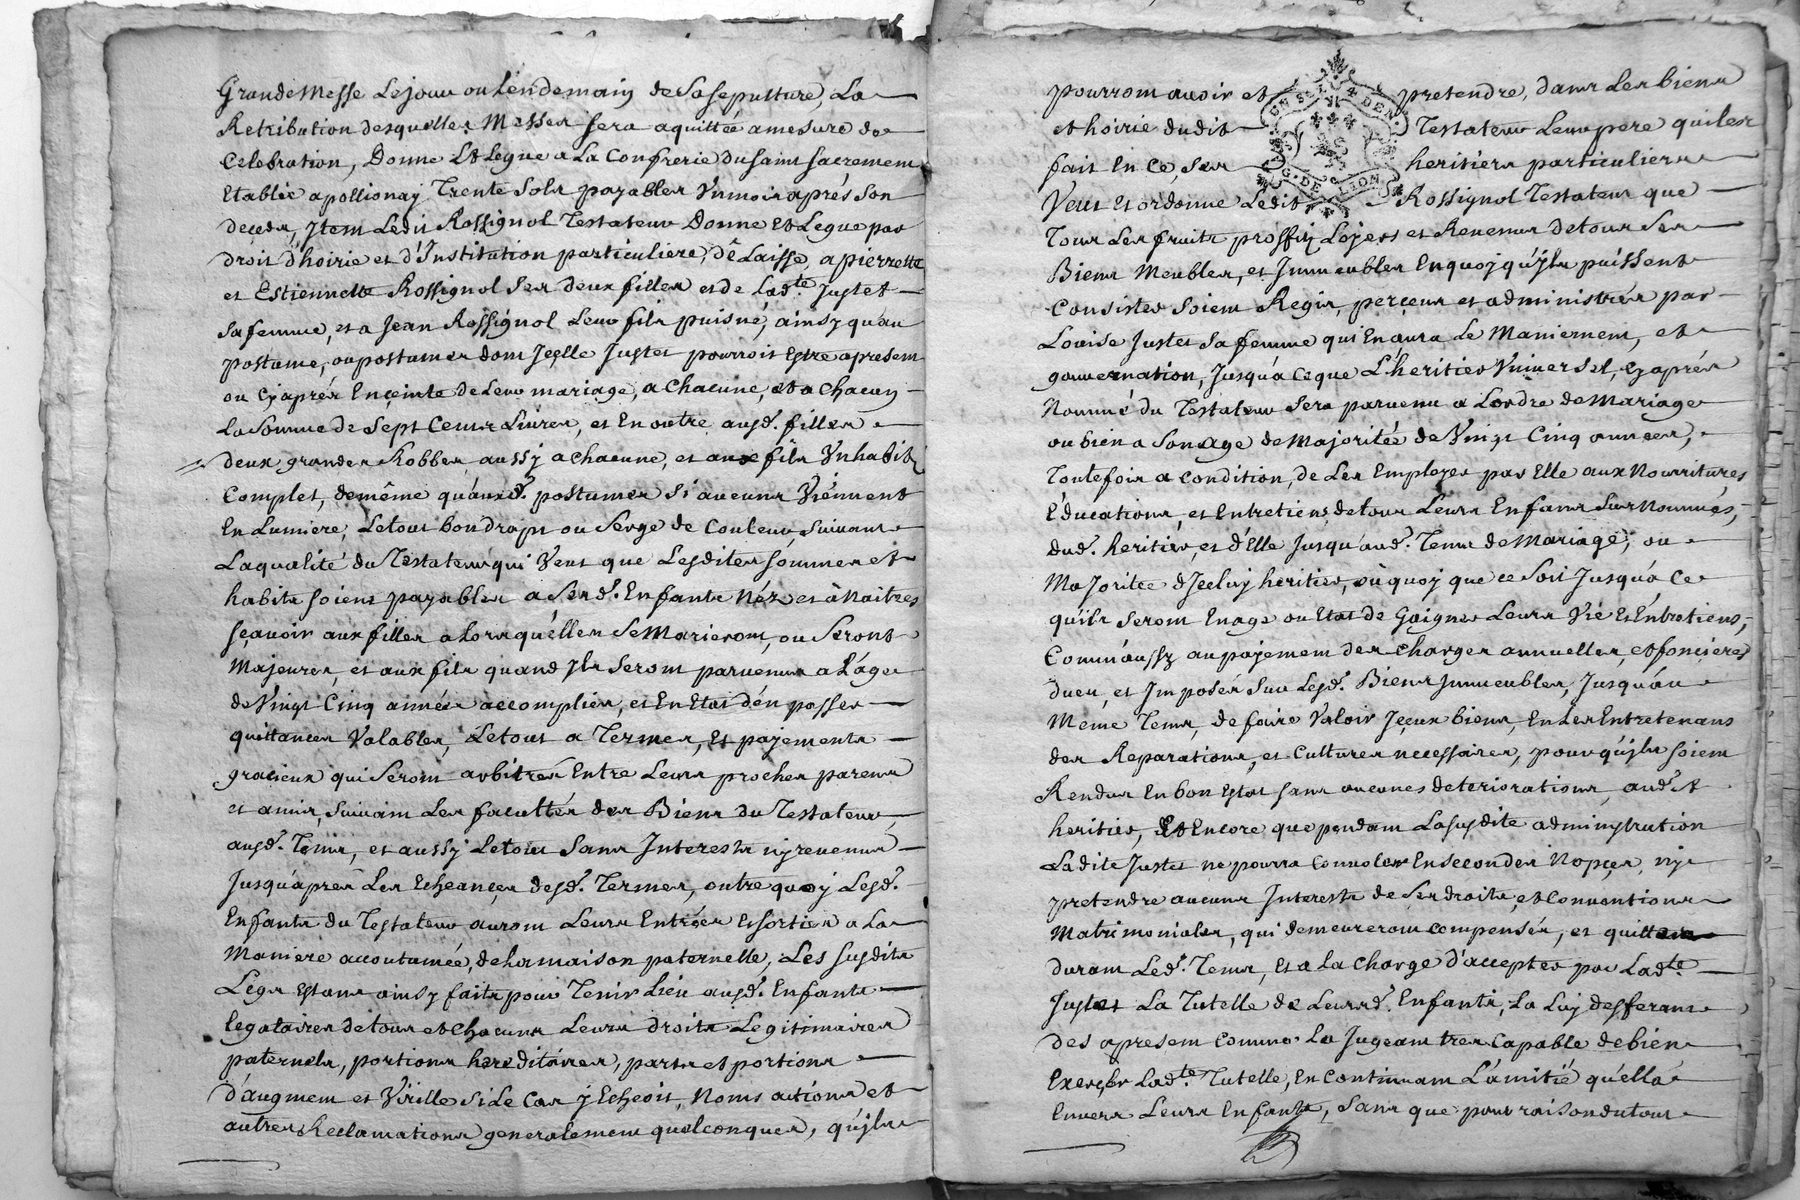 Grande Messe Le jour ou Lendemain de Sa sepulture, La
Retribution desquelles Messes sera aquittée a mesure de
Celebration, Donne Et Legue a La Confrerie du saint sacrement
Etablie a pollionay Trente Sols payables Un mois aprés son
deceds, Item Ledit Rossignol Testateur Donne Et Legue par
droit d'hoirie et d'Institution particuliere, délaisse, a pierrette
et Estiennette Rossignol Ses deux filles et de Lad.te Justet
sa femme, et a Jean Rossignol Leur fils puisné, ainsy qu'au
postume, ou postumes dont Jcelle Justet pourroit Estre apresent
ou Cyaprés Enceinte de Leur mariage, a Chacune, et a Chacun
La Somme de Sept Cents Livres, et En outre ausd. filles
deux grandes Robbes aussy a chacune, et aux fils Un habit
Complet, de même qu'auxd. postumes si aucuns Viénnent
En Lumiere, Le tout bon draps ou Serge de Couleur, suivant
La qualité du Testateur qui Veut que Lesdites sommes et
habits soient payables a Sesd. Enfants Néz et à Naitres
sçavoir aux filles a Lors qu'elles Se Marieront, ou Seront
Majeures, et aux fils quand Jls Seront parvenus a L'âge
de Vingt Cinq année accomplies, et En Etat d'en passer
quittances Valables, Le tout a Termes, Et payements
gracieux qui Seront arbitrés Entre Leurs proches parens
et amis, Suivant Les facultés des Biens du Testateur,
ausd. Tems, et aussy Le tout Sans Interests ny revenus
Jusqu'aprés Les Echeances desd. Termes, outre quoy Lesd.
Enfants du Testateur auront Leurs Entrées Et sorties a La
Maniere accoutumée, de La maison paternelle, Les susdits
Legs Estans ainsy faits pour Tenir Lieu ausd. Enfants
legataires de tous et chacuns Leurs droits Legitimaires
paternels, portions hereditaires, parts et portions
d'augment et Virille si Le Cas y Echeoit, Noms actions et
autres Reclamations generalement quelconques, qu'jls
pourront avoir et pretendre, dans Les biens
et hoirie dudit Testateur Leur pere qui les
fait En ce Ses heritiers particuliers
GEN. DE LION
Veut Et ordonne Ledit Rossignol Testateur que
Tous Les fruits proffits Loyers et Revenus de tous Ses
Biens Meubles, et Jmmeubles En quoy qu'jls puissent
Consister Soient Regis, perçeus et administrés par
Louise Justet Sa femme qui En aura Le Maniement, et
gouvernation, Jusqu'a ce que L'heritier Universel, Cyaprés
Nommé du Testateur Sera parvenu a Lordre de Mariage
ou bien a Son age de Majoritée de Vingt Cinq années,
Toutefois a Condition, de Les Employer par Elle aux Nourritures,
Educations, et Entretiens de tous Leurs Enfans Sus Nommés,
dud. heritier, et d'Elle Jusqu'aud. Tems de Mariage, ou
Majoritee d'Jceluy heritier, ou quoy que ce Soit Jusqu'a Ce
qu'ils Seront En age ou Etat de Gaigner Leurs Vie Et Entretiens,
Comm'aussy au payement des Charges annuelles, et foncieres
dues, et Imposés Sur Lesd. Biens Jmmeubles, Jusqu'au
Même Tems, de faire Valoir Jceux biens, En Les Entretenans
des Reparations, et Cultures necessaires, pour qu'jls soient
Rendus En bon Estat sans aucunes deteriorations, aud.t
heritier, Et Encore que pendant La susdite adminystration
Ladite Justet ne pourra Convoler En secondes Nopces, ny
pretendre aucuns Interests de Ses droits, et Conventions
Matrimoniales, qui demeureront compensés, et quittes
durant Led. Tems, Et a La Charge d'accepter par Lad.te
Justet La Tutelle de Leursd. Enfants, La Luy defferant
des apresent Comme La Jugeant tres Capable de bien
Exerçer Lad.te Tutelle, En Continuant L'amitié qu'elle a
Envers Leurs Enfants, Sans que pour raison du tout